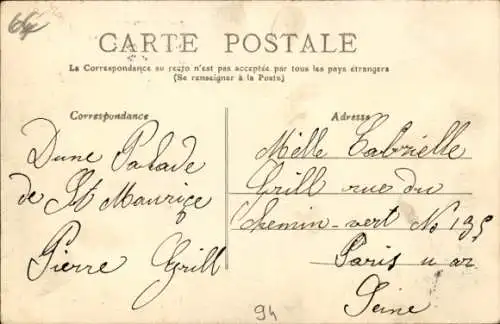 64
CARTE POSTALE
La Correspondance au recto n'est pas acceptée par tous les pays étrangers
(Se renseigner à la Poste)
Correspondance
Adresse
Dune Palade
de St Maurice
Pierre Grill
Melle Gabrielle
Grill rue du
Chemin-vert No 135
Paris
Seine
94